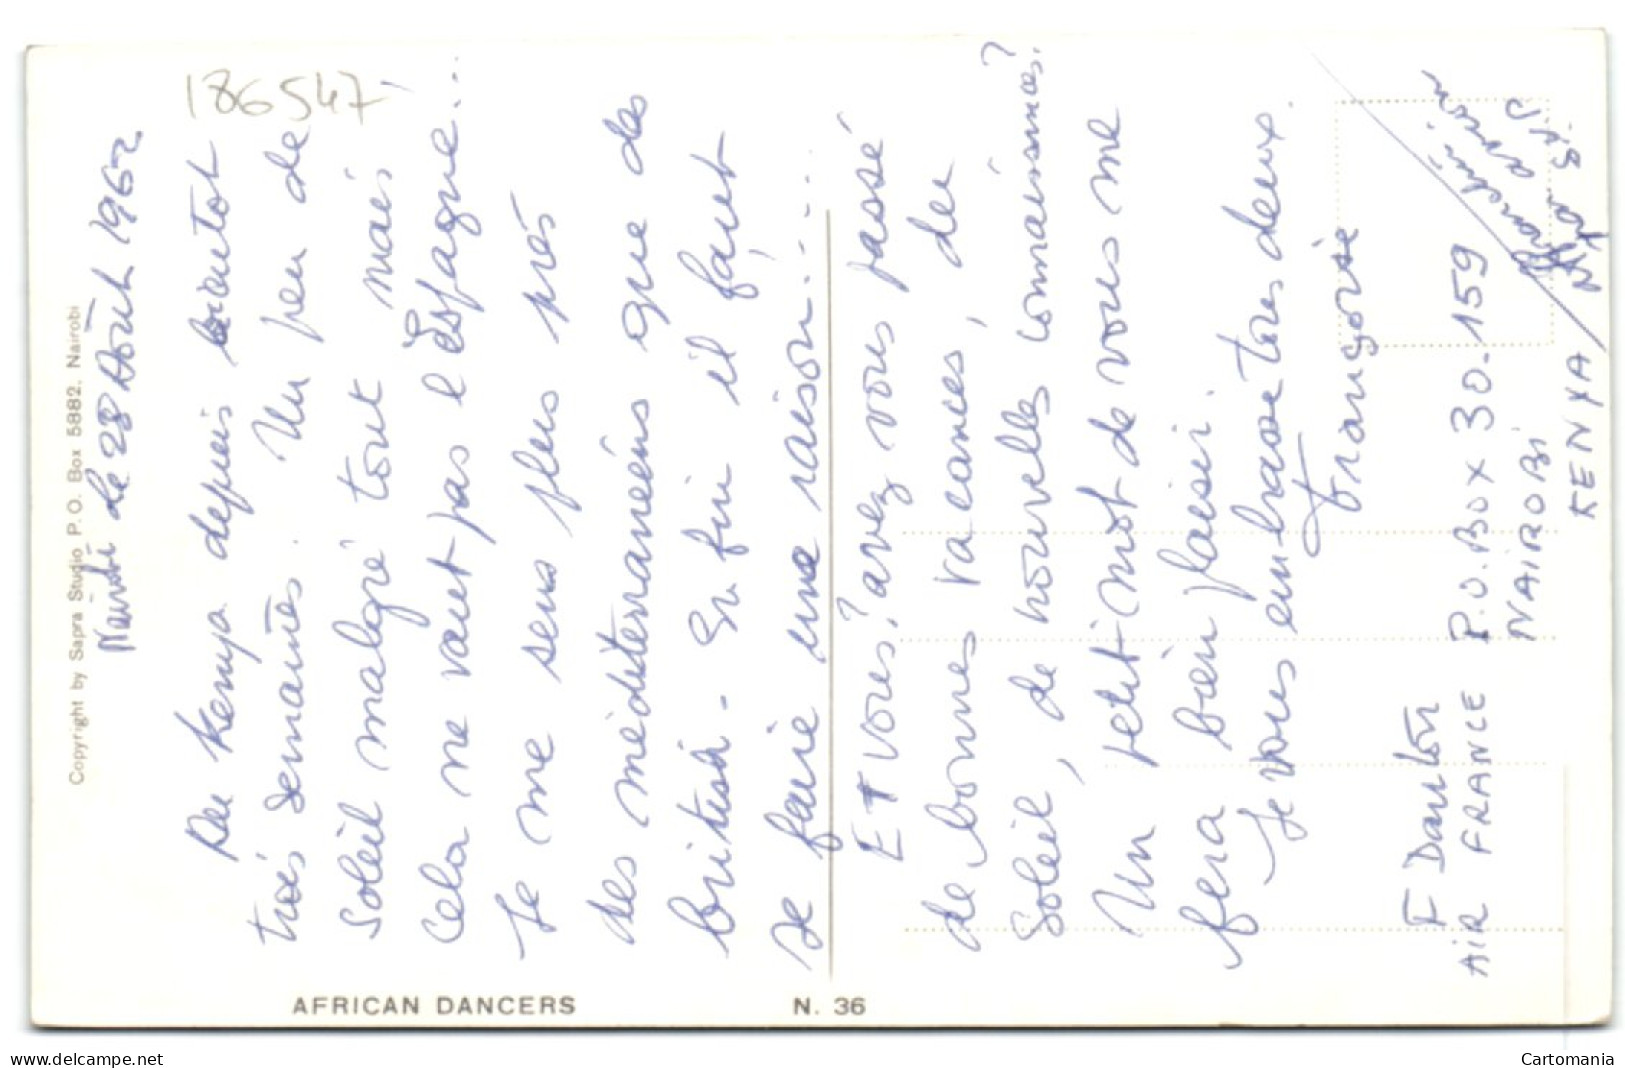 186547
Nairobi le 28 Août 1962
Au Kenya depuis bientot
trois semaines. Un peu de
Soleil malgré tout mais
Cela ne vaut pas l'Espagne...
Je me sens plus près
des méditerranéens que des
british. En fin il faut
se faire une raison....
ET vous? avez vous passé
de bonnes vacances, du
Soleil, de nouvelles connaissances?
Un petit mot de vous me
fera bien plaisir.
Je vous embrasse tous deux.
Françoise
F Danton
AIR FRANCE P.O. BOX 30-159
NAIROBI
KENYA / par avion S.V.P.
Copyright by Sapra Studio P.O. Box 5882, Nairobi
AFRICAN DANCERS N. 36
www.delcampe.net
Cartomania